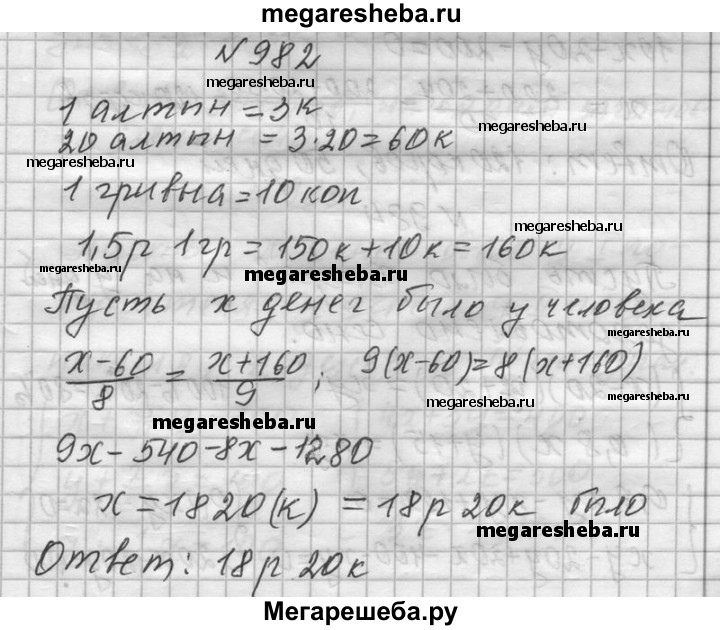 megaresheba.ru
N 982
megaresheba.ru
1 алтын = 3к
megaresheba.ru
20 алтын = 3·20=60к
megaresheba.ru
1 гривна = 10 коп
megaresheba.ru
1,5р 1гр = 150к+10к=160к
megaresheba.ru
megaresheba.ru
Пусть х денег было у человека
megaresheba.ru
x-60/8 = x+160/9; 9(x-60)=8(x+160)
megaresheba.ru
megaresheba.ru
9x-540-8x-1280
x=1820(к) = 18р 20к было
megaresheba.ru
Ответ: 18р 20к
Мегарешеба.ру